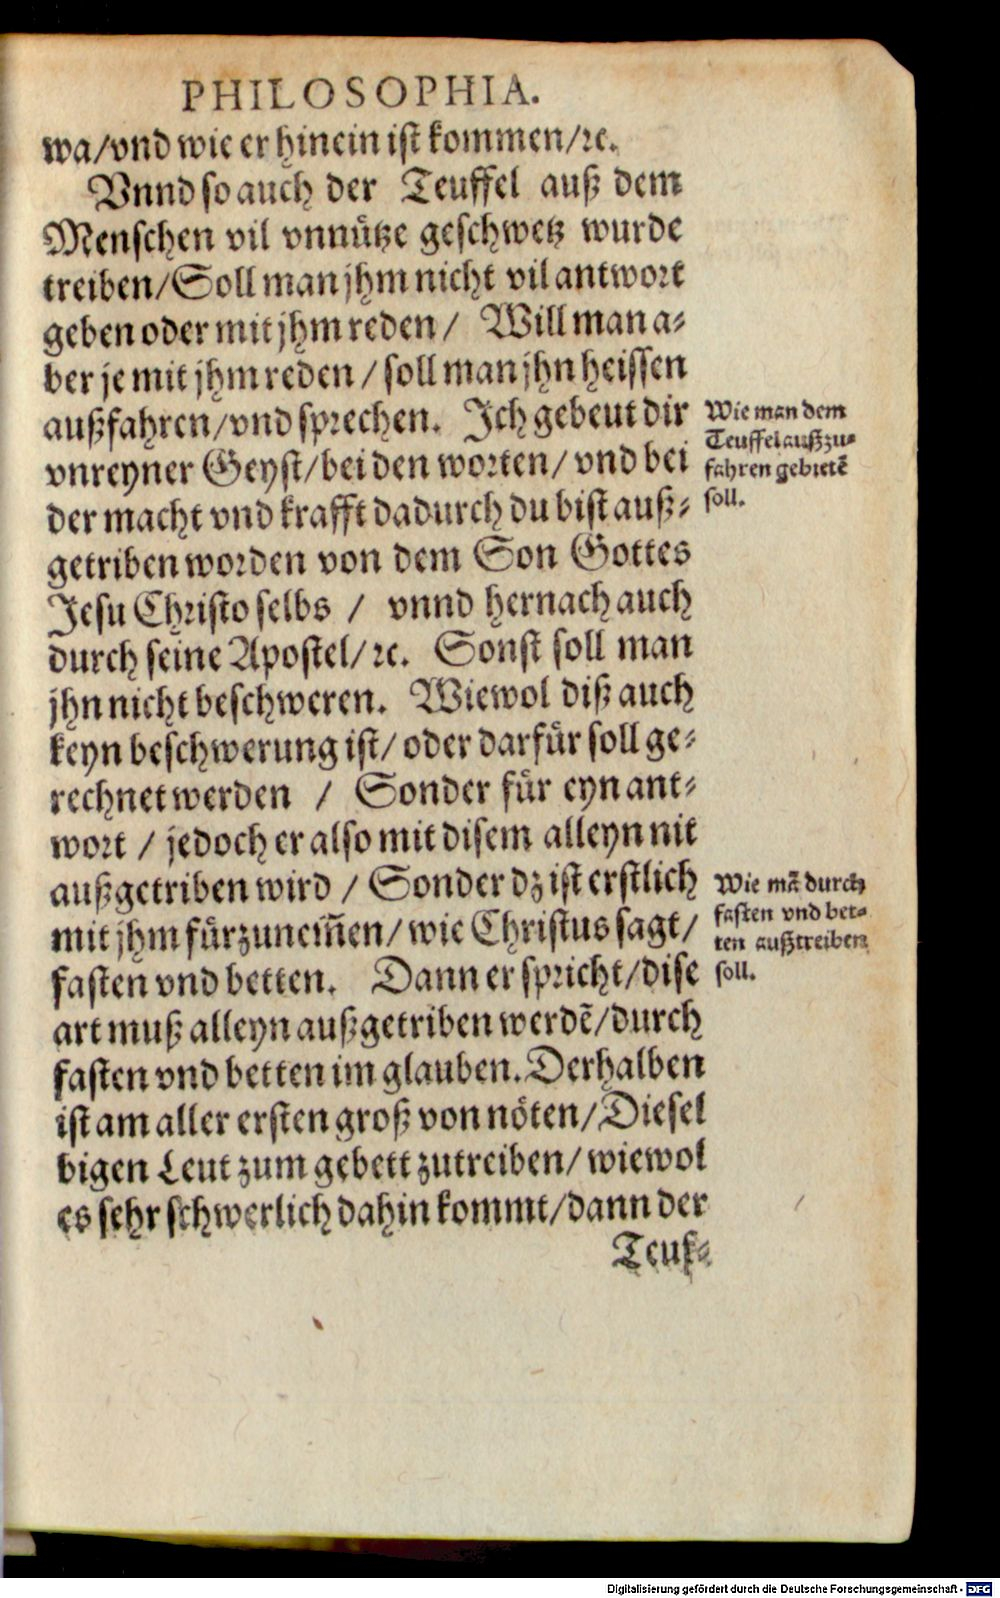 PHILOSOPHIA.
wa/vnd wie er hinein ist kommen/ꝛc.
Vnnd so auch der Teuffel auß dem
Menschen vil vnnütze geschwetz wurde
treiben/Soll man jhm nicht vil antwort
geben oder mit jhm reden/ Will man a⸗
ber je mit jhm reden/soll man jhn heissen
außfahren/vnd sprechen. Ich gebeut dir
vnreyner Geyst/bei den worten/vnd bei
der macht vnd krafft dadurch du bist auß⸗
getriben worden von dem Son Gottes
Jesu Christo selbs / vnnd hernach auch
durch seine Apostel/ꝛc. Sonst soll man
jhn nicht beschweren. Wiewol diß auch
keyn beschwerung ist/oder darfür soll ge⸗
rechnet werden / Sonder für eyn ant⸗
wort / jedoch er also mit disem alleyn nit
außgetriben wird / Sonder dz ist erstlich
mit jhm fürzunem̃en/wie Christus sagt/
fasten vnd betten. Dann er spricht/dise
art muß alleyn außgetriben werdẽ/durch
fasten vnd betten im glauben. Derhalben
ist am aller ersten groß von nöten/Diesel
bigen Leut zum gebett zutreiben/wiewol
es sehr schwerlich dahin kommt/dann der
Teuf⸗
Wie man dem
Teuffel außzu⸗
fahren gebietẽ
soll.
Wie mã durch
fasten vnd bet⸗
ten außtreiben
soll.
Digitalisierung gefördert durch die Deutsche Forschungsgemeinschaft - DFG